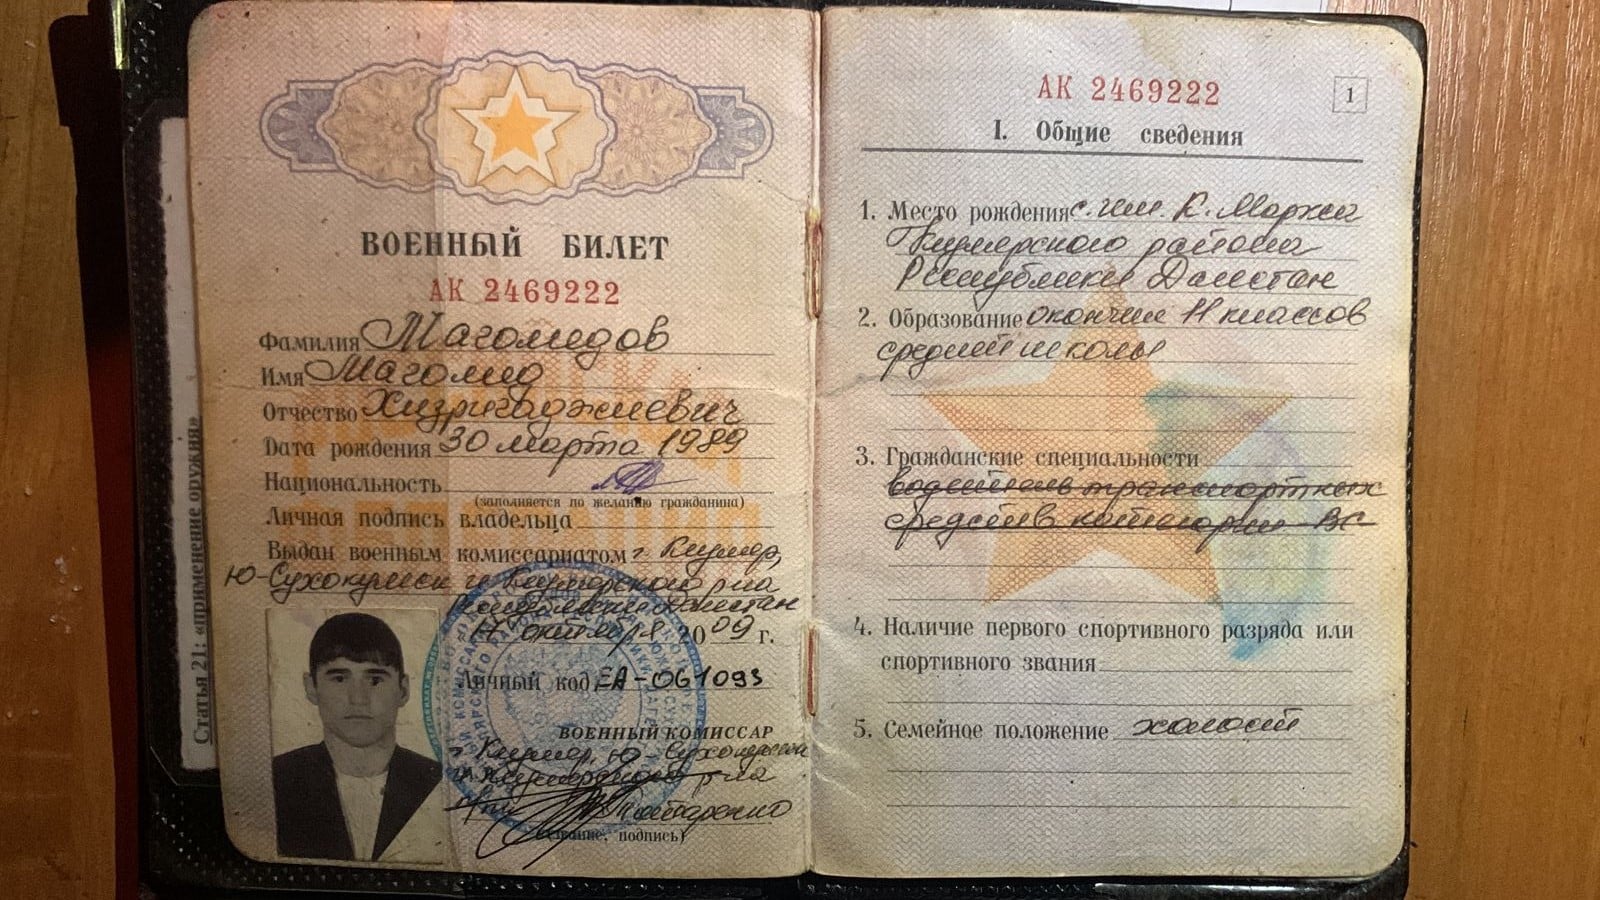 ВОЕННЫЙ БИЛЕТ
АК 2469222
Фамилия Магомедов
Имя Магомед
Отчество Хизригаджиевич
Дата рождения 30 марта 1989
Национальность
(заполняется по желанию гражданина)
Личная подпись владельца
Выдан военным комиссариатом г. Кизляр,
Ю-Сухокумск и Кизлярского р-на
Республики Дагестан
17 октября 2009 г.
Личный код ЕА-061093
ВОЕННЫЙ КОМИССАР
г. Кизляр, Ю-Сухокумска
и Кизлярского р-на
(звание, подпись)
Статья 21: «применение оружия»
АК 2469222
1
I. Общие сведения
1. Место рождения с. им. К. Маркса
Кизлярского района
Республики Дагестан
2. Образование окончил 11 классов
средней школы
3. Гражданские специальности
водитель транспортных
средств категории ВС
4. Наличие первого спортивного разряда или
спортивного звания
5. Семейное положение холост